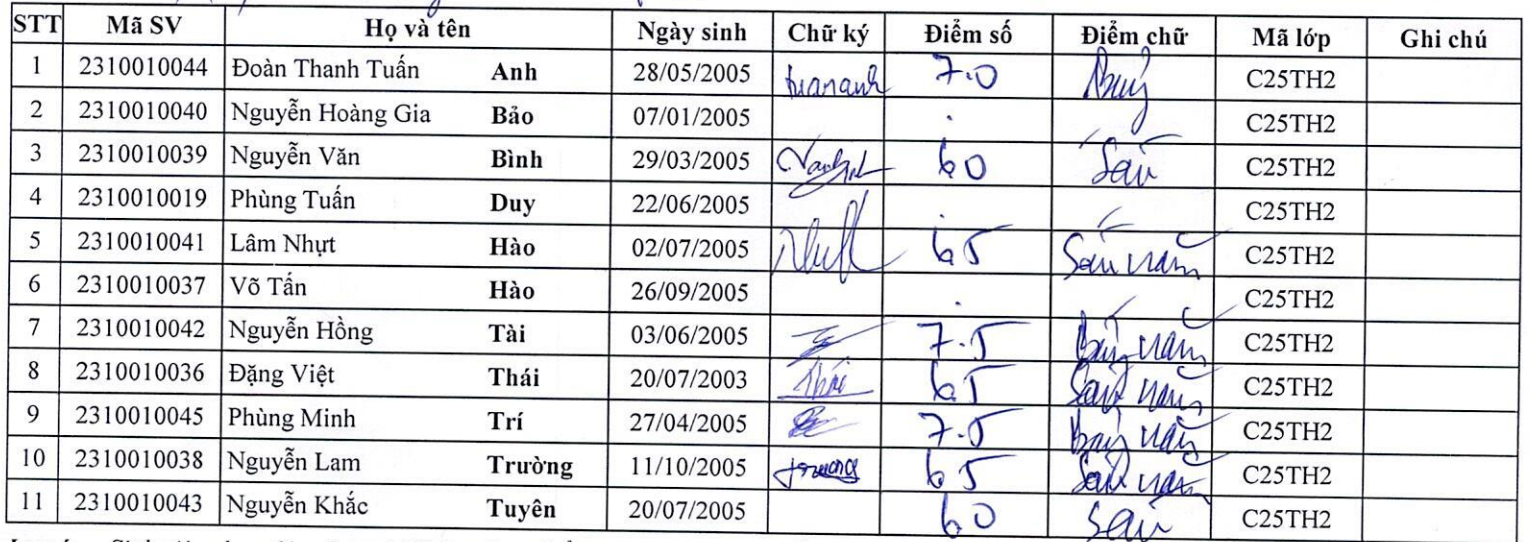 STT Mã SV Họ và tên Ngày sinh Chữ ký Điểm số Điểm chữ Mã lớp Ghi chú
1 2310010044 Đoàn Thanh Tuấn Anh 28/05/2005 tuananh 7.0 Bảy C25TH2
2 2310010040 Nguyễn Hoàng Gia Bảo 07/01/2005 C25TH2
3 2310010039 Nguyễn Văn Bình 29/03/2005 60 Sáu C25TH2
4 2310010019 Phùng Tuấn Duy 22/06/2005 C25TH2
5 2310010041 Lâm Nhựt Hào 02/07/2005 65 Sáu năm C25TH2
6 2310010037 Võ Tấn Hào 26/09/2005 C25TH2
7 2310010042 Nguyễn Hồng Tài 03/06/2005 7.5 Bảy năm C25TH2
8 2310010036 Đặng Việt Thái 20/07/2003 Thái 65 Sáu năm C25TH2
9 2310010045 Phùng Minh Trí 27/04/2005 7.5 Bảy năm C25TH2
10 2310010038 Nguyễn Lam Trường 11/10/2005 trương 65 Sáu năm C25TH2
11 2310010043 Nguyễn Khắc Tuyên 20/07/2005 60 Sáu C25TH2